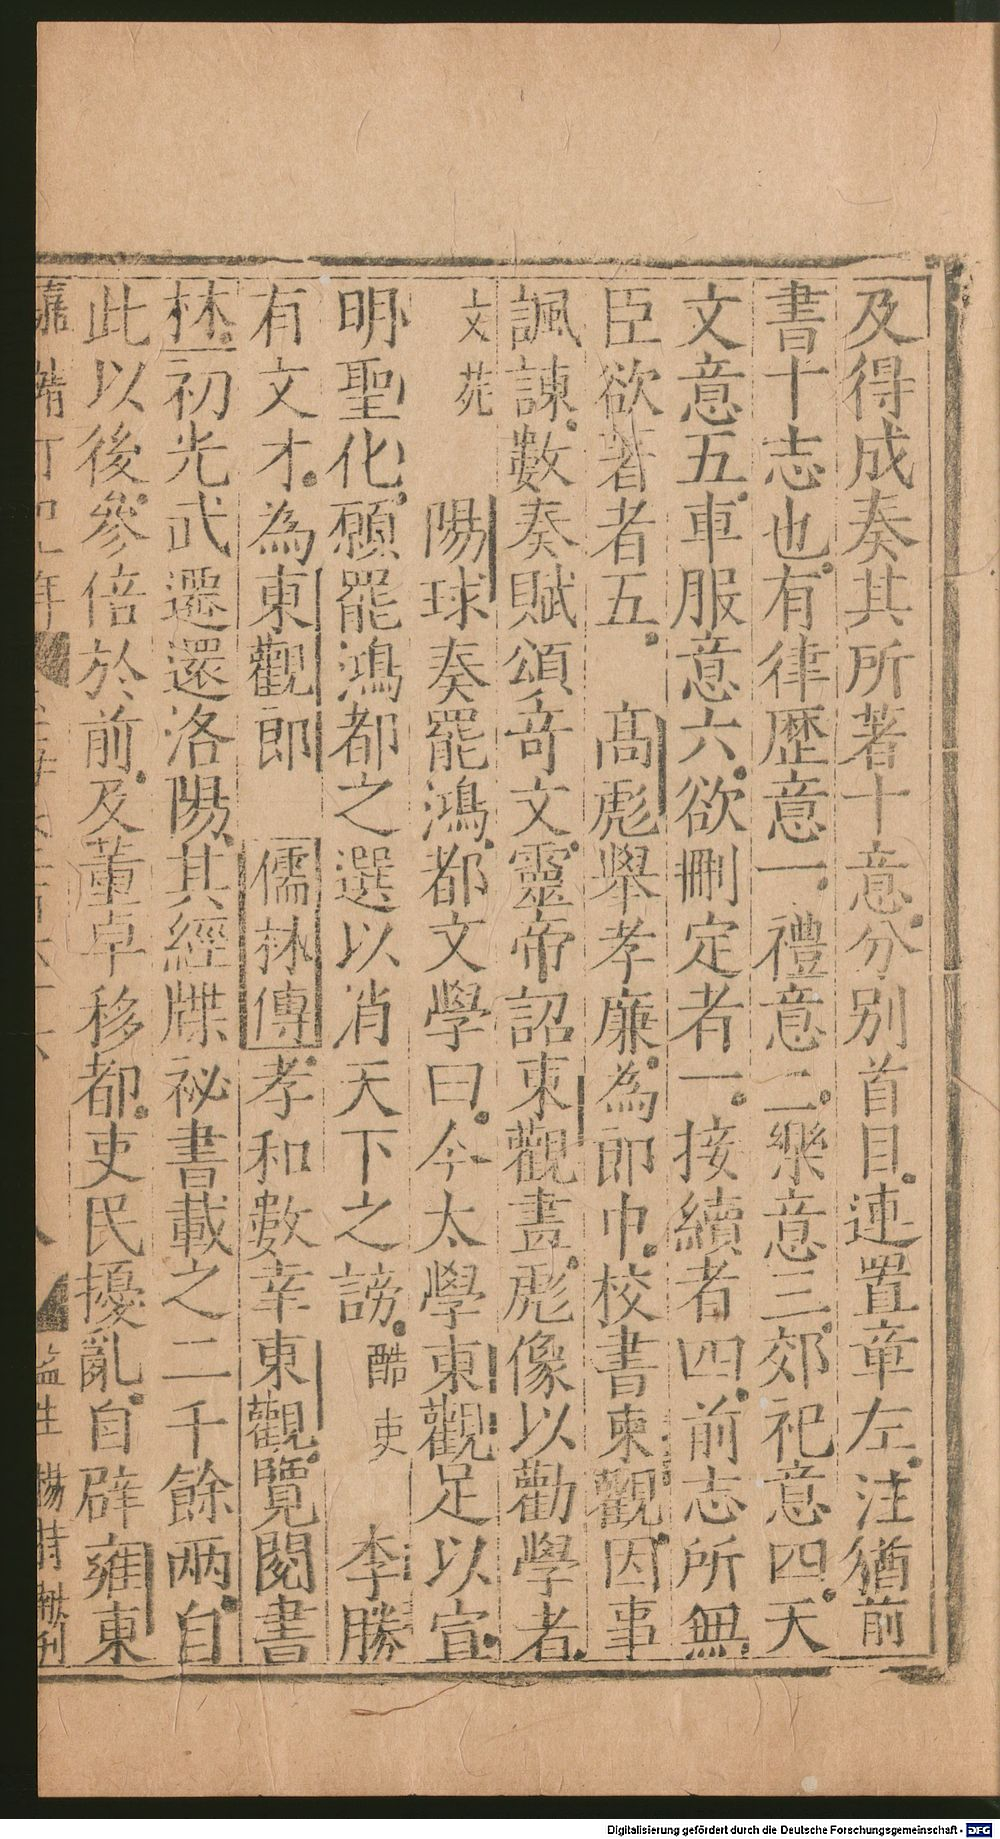 及得成奏其所著十意分別首目連置章左注猶前
書十志也有律歷意一禮意二樂意三郊祀意四天
文意五車服意六欲刪定者一接續者四前志所無
臣欲著者五 高彪舉孝廉為郎中校書東觀因事
諷諫數奏賦頌竒文靈帝詔東觀畫彪像以勸學者
文苑 陽球奏罷鴻都文學曰今太學東觀足以宣
明聖化願罷鴻都之選以消天下之謗酷吏 李勝
有文才為東觀郎 儒林傳孝和數幸東觀覽閱書
林初光武遷還洛陽其經牒祕書載之二千餘兩自
此以後參倍於前及董卓移都吏民擾亂自辟雍東
嘉靖丁 年 監生楊 刊
Digitalisierung gefördert durch die Deutsche Forschungsgemeinschaft - DFG